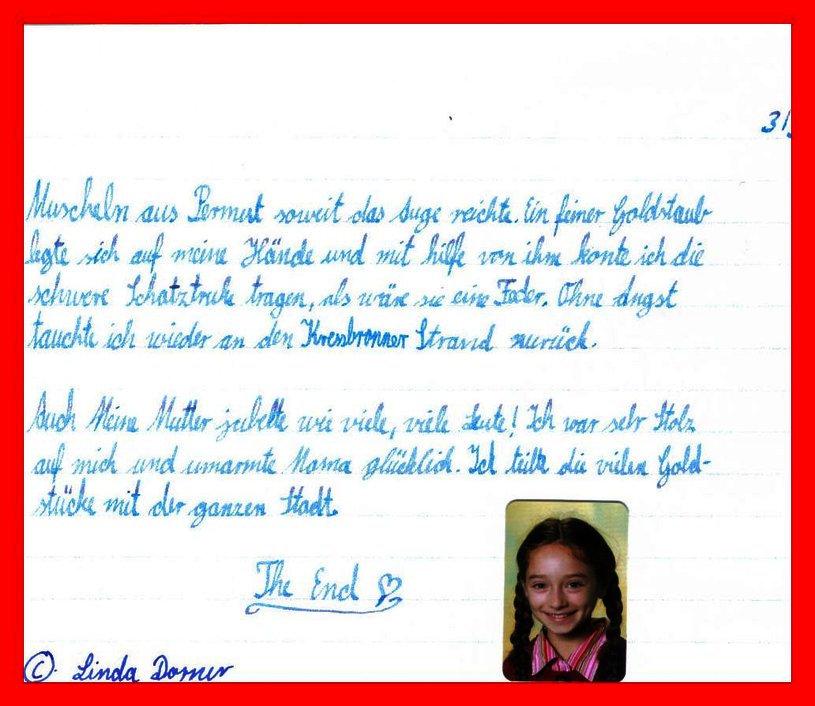 31
Muscheln aus Permut soweit das Auge reichte. Ein feiner Goldstaub
legte sich auf meine Hände und mit hilfe von ihm konte ich die
schwere Schatztruhe tragen, als wäre sie eine Feder. Ohne Angst
tauchte ich wieder an den Kressbronner Strand zurück.
Auch Meine Mutter jubelte wie viele, viele Leute! Ich war sehr Stolz
auf mich und umarmte Mama glücklich. Ich teilte die vielen Gold-
stücke mit der ganzen Stadt.
The End
© Linda Dorner